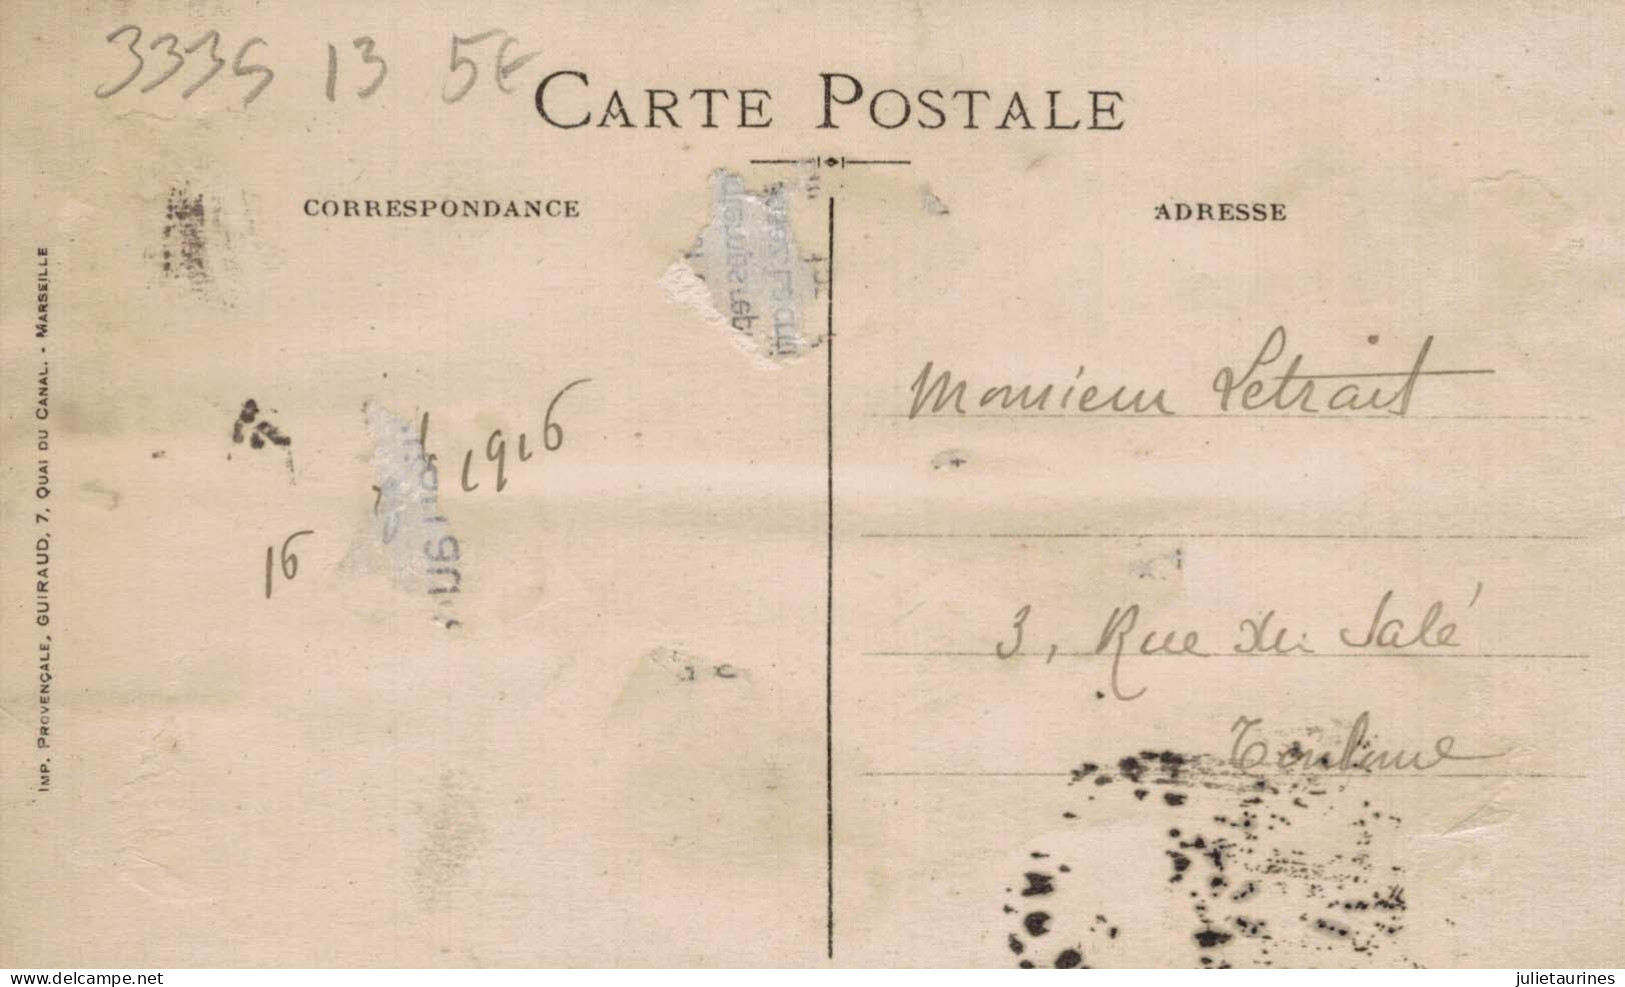 3335 13 5€
CARTE POSTALE
CORRESPONDANCE
ADRESSE
IMP. PROVENÇALE, GUIRAUD, 7, QUAI DU CANAL. - MARSEILLE
16 1916
Monsieur Letrait
3, Rue du Salé
Toulouse
www.delcampe.net
julietaurines